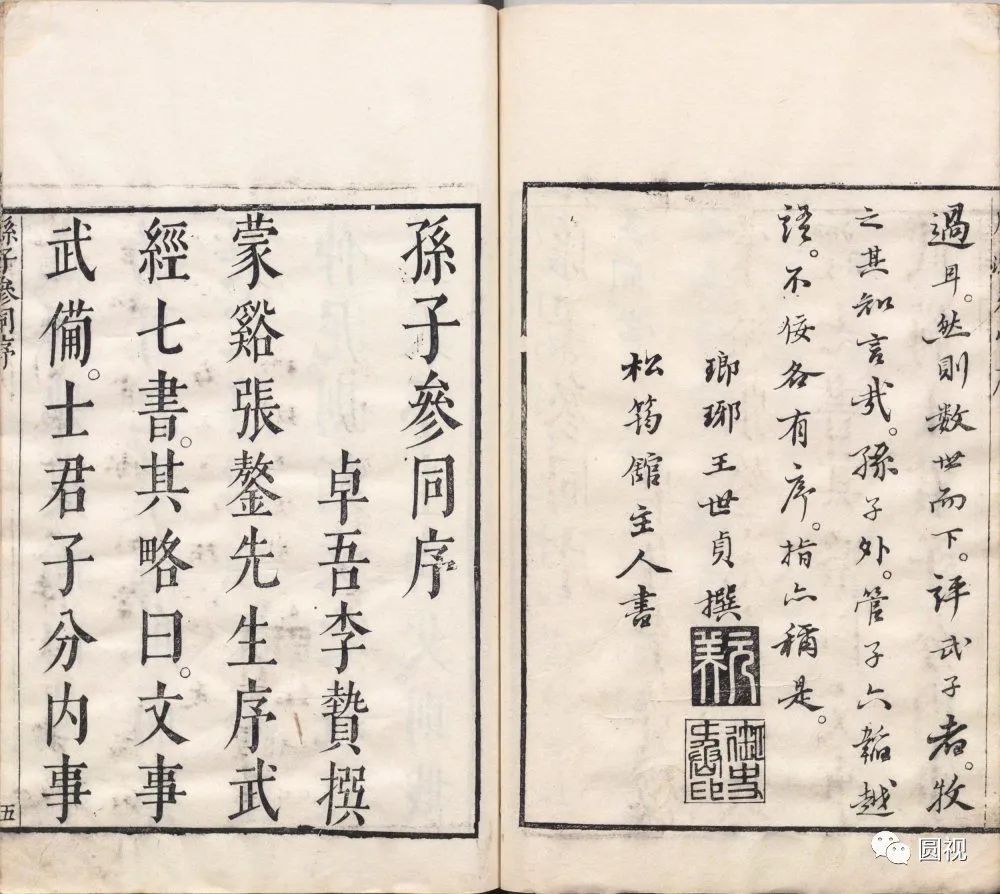 過耳。然則数世而下。評武子者。牧
之其知言哉。孫子外。管子六韜越
語。不佞各有序。指亦稱是。
瑯琊王世貞撰
松筠館主人書
孫子參同序
卓吾李贄撰
蒙谿張鏊先生序武
經七書。其略曰。文事
武備。士君子分內事
孫子參同序
五
圆视